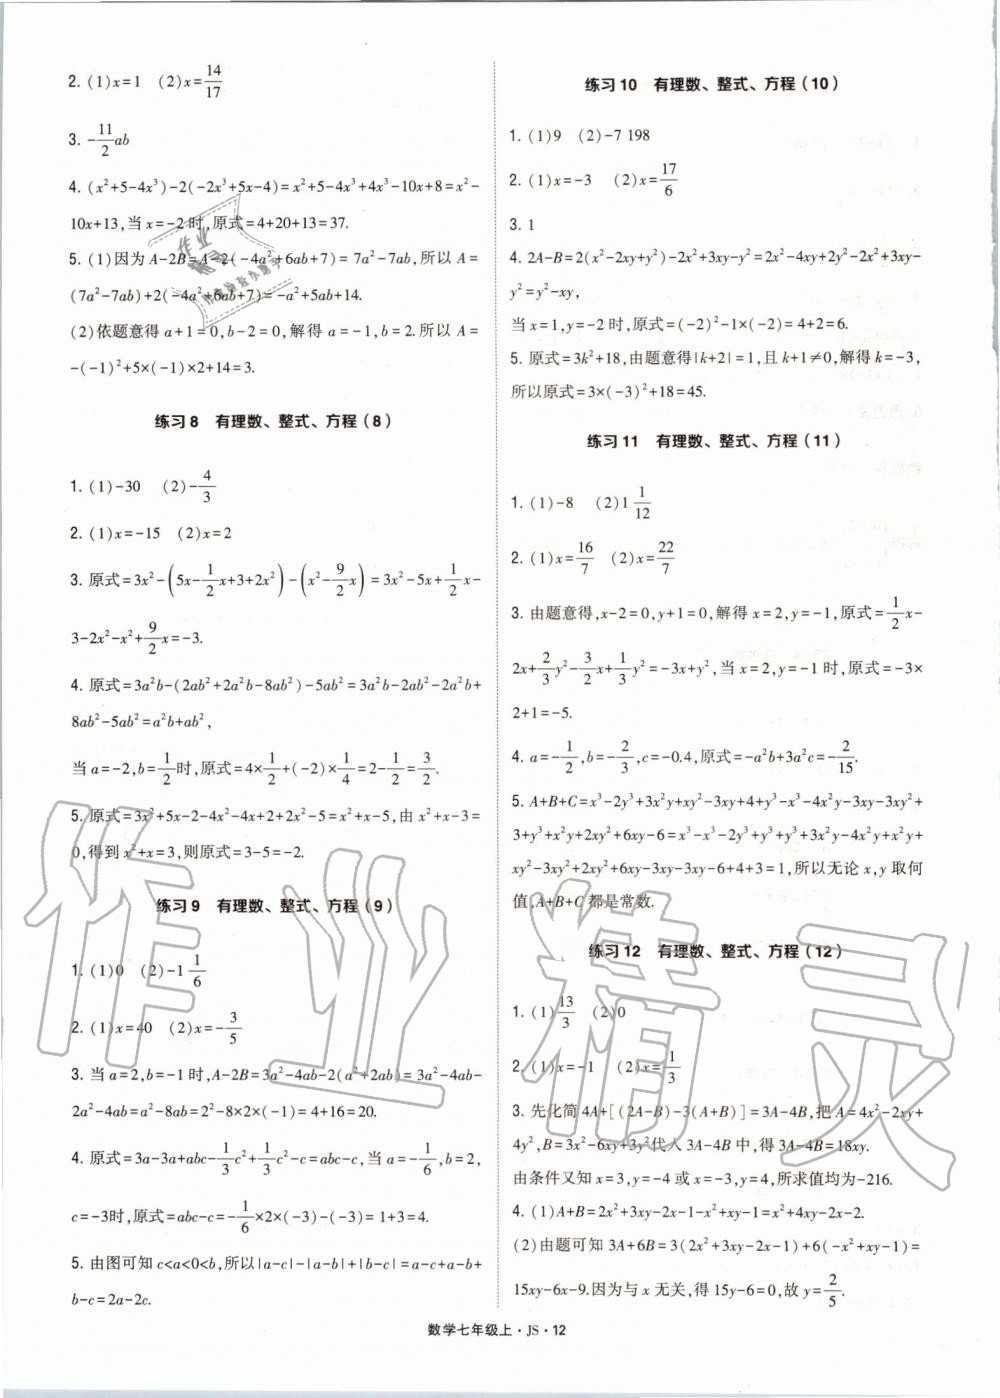 2. (1)x=1　(2)x=14/17
3. -11/2ab
4. (x²+5-4x³)-2(-2x³+5x-4)=x²+5-4x³+4x³-10x+8=x²-
10x+13,当 x=-2时,原式=4+20+13=37.
5. (1)因为 A-2B=A-2(-4a²+6ab+7)=7a²-7ab,所以 A=
(7a²-7ab)+2(-4a²+6ab+7)=-a²+5ab+14.
(2)依题意得 a+1=0,b-2=0,解得 a=-1,b=2.所以 A=
-(-1)²+5×(-1)×2+14=3.
练习8　有理数、整式、方程(8)
1. (1)-30　(2)-4/3
2. (1)x=-15　(2)x=2
3. 原式=3x²-(5x-1/2x+3+2x²)-(x²-9/2x)=3x²-5x+1/2x-
3-2x²-x²+9/2x=-3.
4. 原式=3a²b-(2ab²+2a²b-8ab²)-5ab²=3a²b-2ab²-2a²b+
8ab²-5ab²=a²b+ab²,
当 a=-2,b=1/2时,原式=4×1/2+(-2)×1/4=2-1/2=3/2.
5. 原式=3x²+5x-2-4x²-4x+2+2x²-5=x²+x-5,由 x²+x-3=
0,得到 x²+x=3,则原式=3-5=-2.
练习9　有理数、整式、方程(9)
1. (1)0　(2)-1 1/6
2. (1)x=40　(2)x=-3/5
3. 当 a=2,b=-1 时,A-2B=3a²-4ab-2(a²+2ab)=3a²-4ab-
2a²-4ab=a²-8ab=2²-8×2×(-1)=4+16=20.
4. 原式=3a-3a+abc-1/3c²+1/3c²-c=abc-c,当 a=-1/6,b=2,
c=-3时,原式=abc-c=-1/6×2×(-3)-(-3)=1+3=4.
5. 由图可知 c<a<0<b,所以|a-c|-|a-b|+|b-c|=a-c+a-b+
b-c=2a-2c.
练习10　有理数、整式、方程(10)
1. (1)9　(2)-7 198
2. (1)x=-3　(2)x=17/6
3. 1
4. 2A-B=2(x²-2xy+y²)-2x²+3xy-y²=2x²-4xy+2y²-2x²+3xy-
y²=y²-xy,
当 x=1,y=-2 时,原式=(-2)²-1×(-2)=4+2=6.
5. 原式=3k²+18,由题意得|k+2|=1,且 k+1≠0,解得 k=-3,
所以原式=3×(-3)²+18=45.
练习11　有理数、整式、方程(11)
1. (1)-8　(2)1 1/12
2. (1)x=16/7　(2)x=22/7
3. 由题意得,x-2=0,y+1=0,解得 x=2,y=-1,原式=1/2x-
2x+2/3y²-3/2x+1/3y²=-3x+y²,当 x=2,y=-1 时,原式=-3×
2+1=-5.
4. a=-1/2,b=-2/3,c=-0.4,原式=-a²b+3a²c=-2/15.
5. A+B+C=x³-2y³+3x²y+xy²-3xy+4+y³-x³-4x²y-3xy-3xy²+
3+y³+x²y+2xy²+6xy-6=x³-x³-2y³+y³+y³+3x²y-4x²y+x²y+
xy²-3xy²+2xy²+6xy-3xy-3xy-6+4+3=1,所以无论 x,y 取何
值,A+B+C 都是常数.
练习12　有理数、整式、方程(12)
1. (1)13/3　(2)0
2. (1)x=-1　(2)x=1/3
3. 先化简 4A+[(2A-B)-3(A+B)]=3A-4B,把 A=4x²-2xy+
4y²,B=3x²-6xy+3y²代入 3A-4B 中,得 3A-4B=18xy.
由条件又知 x=3,y=-4 或 x=-3,y=4,所求值均为-216.
4. (1)A+B=2x²+3xy-2x-1-x²+xy-1=x²+4xy-2x-2.
(2)由题可知 3A+6B=3(2x²+3xy-2x-1)+6(-x²+xy-1)=
15xy-6x-9.因为与 x 无关,得 15y-6=0,故 y=2/5.
数学七年级上·JS·12
作业精灵